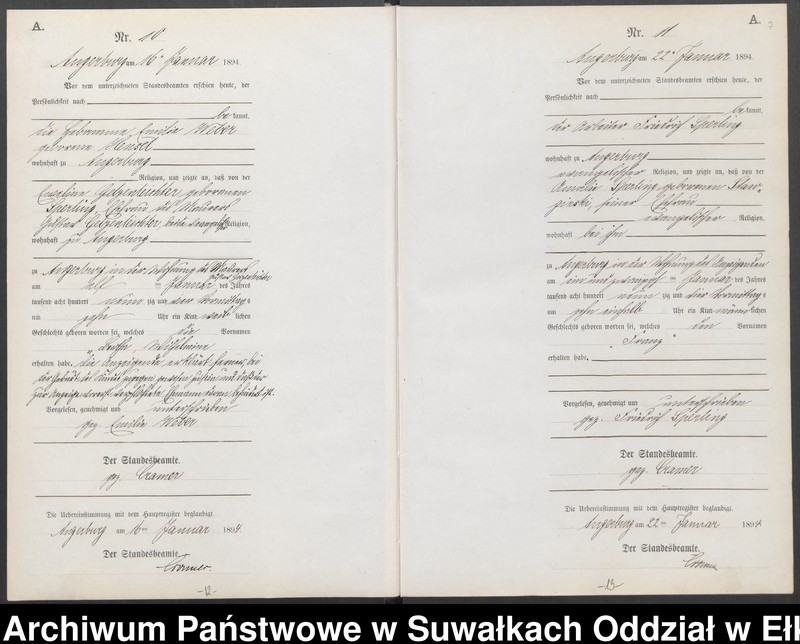 A.
Nr. 10
Angerburg am 16ten Januar 1894.
Vor dem unterzeichneten Standesbeamten erschien heute, der
Persönlichkeit nach
be kannt,
die Hebamme Emilie Weber
geborene Hensel
wohnhaft zu Angerburg
Religion, und zeigte an, daß von der
geborenen
Sperling, Ehefrau des Maurers
beide evangelischer Religion,
wohnhaft zu Angerburg
zu Angerburg in der Wohnung des Maurers
am elf ten Januar des Jahres
tausend acht hundert neun zig und vier Vormittags
um zehn Uhr ein Kind weib lichen
Geschlechts geboren worden sei, welches die Vornamen
Bertha Wilhelmine
erhalten habe. Die Anzeigende erklärt ferner, bei
der Geburt des Kindes zugegen gewesen zu sein und daß der
zur Anzeige Ehemann behindert ist.
Vorgelesen, genehmigt und unterschrieben
gez. Emilie Weber
Der Standesbeamte.
gez. Cramer
Die Uebereinstimmung mit dem Hauptregister beglaubigt.
Angerburg am 16ten Januar 1894.
Der Standesbeamte.
Cramer.
-12-
A.
7
Nr. 11
Angerburg am 22ten Januar 1894
Vor dem unterzeichneten Standesbeamten erschien heute, der
Persönlichkeit nach
be kannt,
der Arbeiter Friedrich Sperling
wohnhaft zu Angerburg
evangelischer Religion, und zeigte an, daß von der
Amalie Sperling geborenen
seiner Ehefrau
evangelischer Religion,
wohnhaft bei ihm
zu Angerburg in der Wohnung des Anzeigenden
am ein und zwanzigsten Januar des Jahres
tausend acht hundert neun zig und vier Vormittags
um zehn einhalb Uhr ein Kind männ lichen
Geschlechts geboren worden sei, welches den Vornamen
"Franz"
erhalten habe.
Vorgelesen, genehmigt und unterschrieben
gez. Friedrich Sperling
Der Standesbeamte.
gez. Cramer
Die Uebereinstimmung mit dem Hauptregister beglaubigt.
Angerburg am 22ten Januar 1894
Der Standesbeamte.
Cramer
-13-
Archiwum Państwowe w Suwałkach Oddział w Ełk